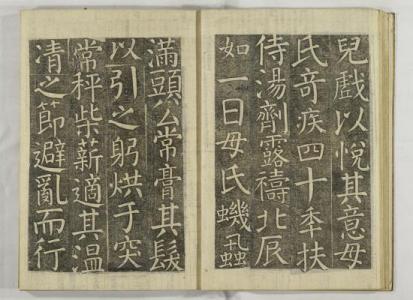 兒戲以悅其意母
氏奇疾四十秊扶
侍湯劑露禱北辰
如一日母氏蟣蝨
滿頭公常膏其髮
以引之躬烘于突
常秤柴薪適其溫
凊之節避亂而行